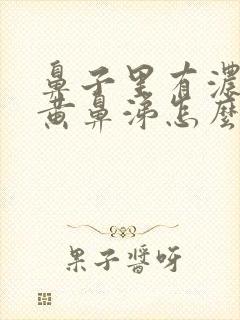 鼻子里有濃
黄鼻涕怎麽
果子醬呀